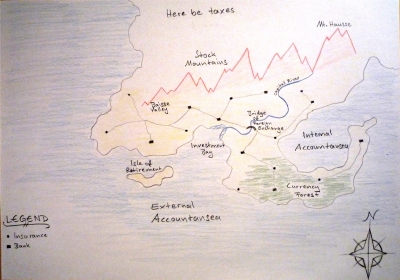 Here be taxes
Mt. Hausse
Stock
Mountains
Capital River
Baisse
Valley
Bridge
of
Foreign
Exchange
Investment
Bay
Internal
Accountansea
Isle of
Retirement
Currency
Forest
External
Accountansea
LEGEND
Insurance
Bank
N